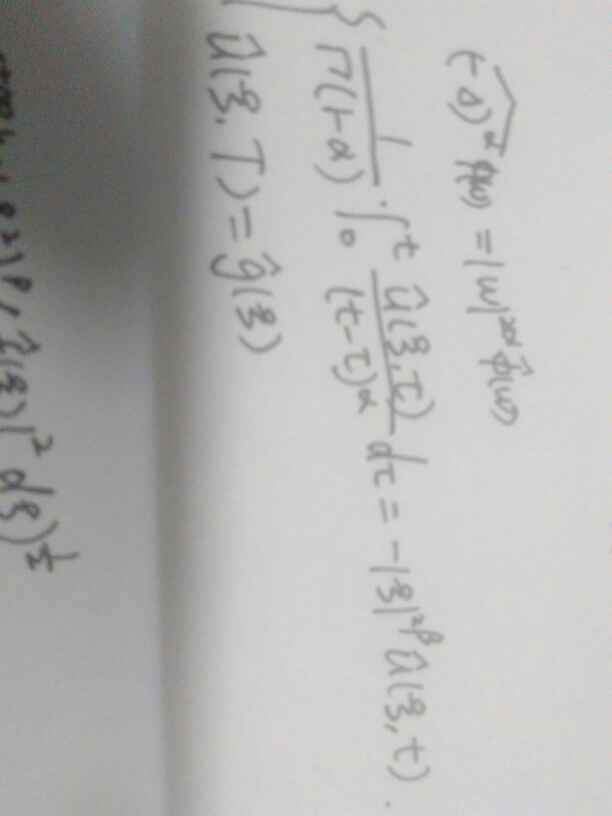 \widehat{(-Δ)^α φ(ω)} = |ω|^{2α} \hat{φ}(ω)
{ \frac{1}{Γ(1-α)} · \int_0^t \frac{\hat{u}(ξ,τ)}{(t-τ)^α} dτ = -|ξ|^{2β} \hat{u}(ξ,t).
\hat{u}(ξ,T) = \hat{g}(ξ)
\hat{f}(ξ)|^2 dξ)^{\frac{1}{2}}